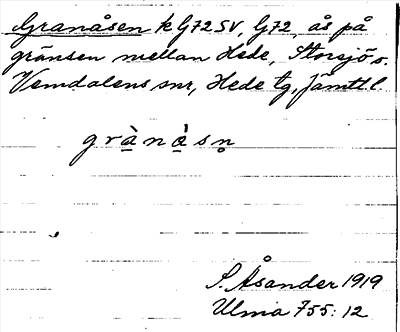 Granåsen k G72SV, G72, ås på
gränsen mellan Hede, Storsjö o.
Vemdalens snr, Hede tg, Jämtl l.
grànå̀sn̥
S. Åsander 1919
Ulma 755:12